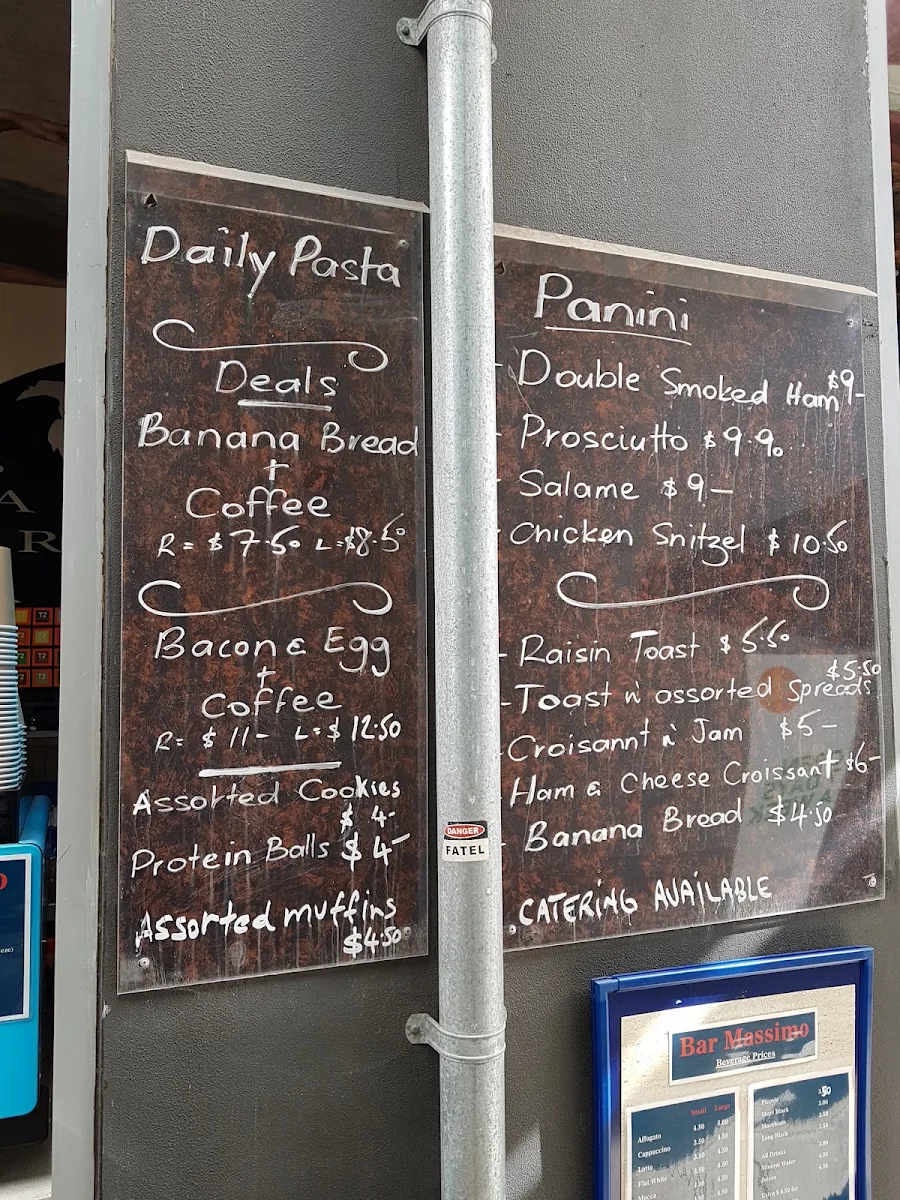 Daily Pasta
Deals
Banana Bread
+
Coffee
R = $7.50 L = $8.50
Bacon & Egg
+
Coffee
R = $11- L = $12.50
Assorted Cookies
$4-
Protein Balls $4-
Assorted muffins
$4.50
Panini
- Double Smoked Ham $9-
- Prosciutto $9.90
- Salame $9-
- Chicken Snitzel $10.50
- Raisin Toast $5.50
- Toast n' assorted Spreads $5.50
- Croisannt n' Jam $5-
- Ham & Cheese Croissant $6-
- Banana Bread $4.50
CATERING AVAILABLE
DANGER
FATEL
A
R
T2
Bar Massimo
Beverage Prices
Small Large
Affogato 4.50 5.00
Cappuccino 3.50 4.50
Latte 3.50 4.50
Flat White
Mocca
Piccolo 3.50
Short Black 3.00
Macchiato 3.50
Long Black
All Drinks
Mineral Water
Juices